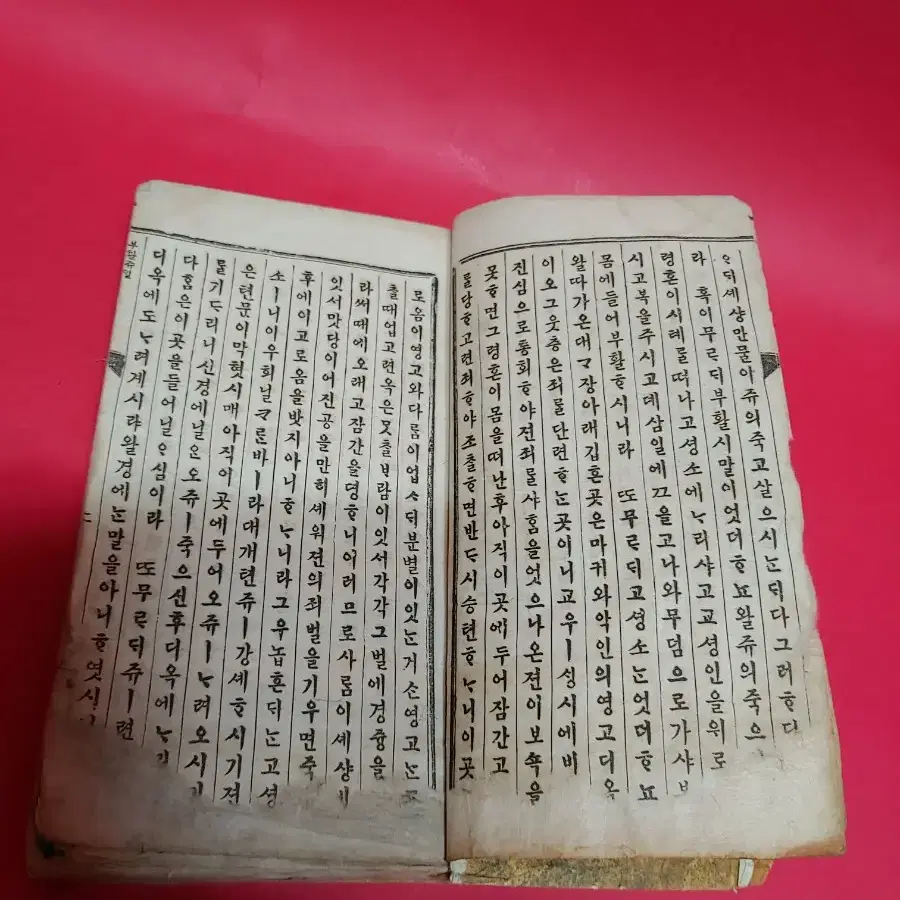 ᄋᆞᄃᆡ셰샹만물아쥬의죽고살으시ᄂᆞᆫᄃᆡ다그러ᄒᆞ다
라 혹이무ᄅᆞᄃᆡ부활시말이엇더ᄒᆞ뇨왈쥬의죽으
령혼이시례ᄅᆞᆯᄯᅥ나고셩소에ᄂᆞ리샤고교셩인을위로
시고복을주시고뎨삼일에ᄭᅳ을고나와무덤으로가샤
몸에들어부활ᄒᆞ시니라 ᄯᅩ무ᄅᆞᄃᆡ고셩소ᄂᆞᆫ엇더ᄒᆞ뇨
왈ᄯᅡ가온대ᄀᆞ장아래깁흔곳은마귀와악인의영고디옥
이오그웃층은죄ᄅᆞᆯ단련ᄒᆞᄂᆞᆫ곳이니고우ㅣ성시에비
진심으로통회ᄒᆞ야젼죄ᄅᆞᆯ샤ᄒᆞᆷ을엇으나온젼이보쇽을
못ᄒᆞ면그령혼이몸을ᄯᅥ난후아직이곳에두어잠간고
ᄅᆞᆯ당ᄒᆞ고련죄ᄒᆞ야조촐ᄒᆞ면반ᄃᆞ시승텬ᄒᆞᄂᆞ니이곳
로옴이영고와다ᄅᆞᆷ이업ᄉᆞᄃᆡ분별이잇ᄂᆞᆫ거ᄉᆞᆫ영고ᄂᆞᆫ
촐ᄯᅢ업고련옥은못촐ᄇᆞ람이잇서각각그벌에경즁을
라써ᄯᅢ에오래고잠간을뎡ᄒᆞ니이러므로사ᄅᆞᆷ이셰샹에
잇서맛당이어진공을만히셰워젼의죄벌을기우면죽
후에이고로옴을밧지아니ᄒᆞᄂᆞ니라그우놉흔ᄃᆡᄂᆞᆫ고셩
소ㅣ니이우희닐ᄏᆞᄅᆞᆫ바ㅣ라대개텬쥬ㅣ강셰ᄒᆞ시기젼
은텬문이막혓시매아직이곳에두어오쥬ㅣᄂᆞ려오시기
ᄅᆞᆯ기ᄃᆞ리니신경에닐ᄋᆞᆫ오쥬ㅣ죽으신후디옥에ᄂᆞ리
다ᄒᆞᆷ은이곳을들어닐ᄋᆞ심이라 ᄯᅩ무ᄅᆞᄃᆡ쥬ㅣ련
디옥에도ᄂᆞ려계시랴왈경에ᄂᆞᆫ말을아니ᄒᆞ엿시
부활쥬일